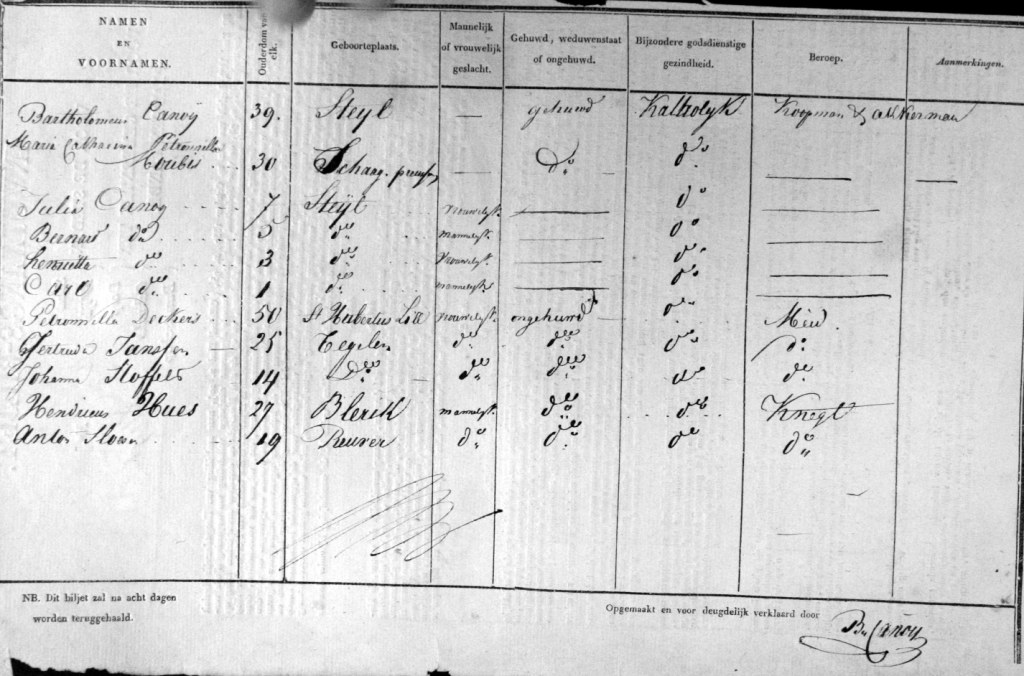 NAMEN EN VOORNAMEN. Ouderdom van elk. Geboorteplaats. Mannelijk of vrouwelijk geslacht. Gehuwd, weduwenstaat of ongehuwd. Bijzondere godsdienstige gezindheid. Beroep. Aanmerkingen.
Bartholomeus Canoÿ 39. Steyl — gehuwd Katholyk Koopman & akkerman
Maria Catharina Petronella
Moubis 30 — do do — —
Julie Canoy 7 Steÿl vrouwelyk — do —
Bernard do 5 do mannelyk — do —
henriette do 3 do vrouwelyk — do —
Carl do 1 do mannelyk — do —
Petronella Deckers 50 St Hubertus vrouwelyk ongehuwd do Meid.
Gertruda Janssen — 25 Tegelen do do do do
Johanna Stoffels 14 do do do do do
Hendricus Hues 27 Blerick mannelyk do do Knegt
Anton 19 Reuver do do do do
NB. Dit biljet zal na acht dagen
worden teruggehaald.
Opgemaakt en voor deugdelijk verklaard door
B. Canoy